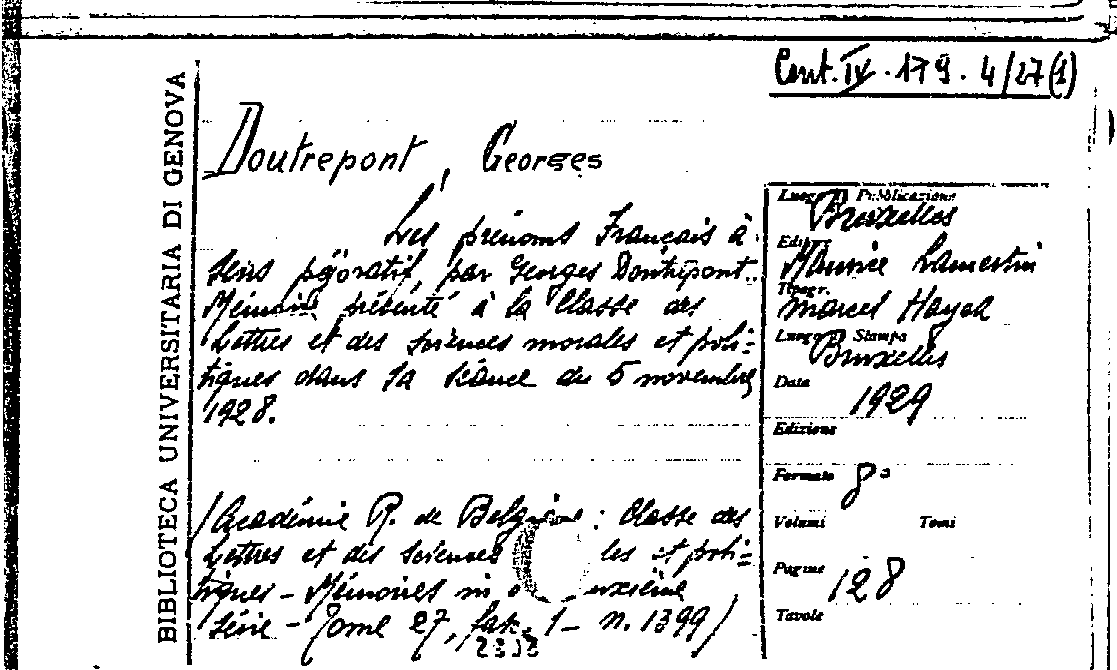 Cont. IV. 179. 4/27(1)
BIBLIOTECA UNIVERSITARIA DI GENOVA
Doutrepont, Georges
Les prénoms Français à
sens péjoratif, par Georges Doutrepont.
Mémoire présenté à la Classe des
Lettres et des sciences morales et poli=
tiques dans la séance du 5 novembre
1928.
(Académie R. de Belgique : Classe des
Lettres et des sciences les et poli=
tiques - Mémoires in uxième
série - Tome 27, fasc. 1 - n. 1399)
Luogo di Pubblicazione
Bruxelles
Editore
Maurice Lamertin
Tipogr.
Marcel Hayez
Luogo di Stampa
Bruxelles
Data
1929
Edizione
Formato 8°
Volumi Tomi
Pagine 128
Tavole